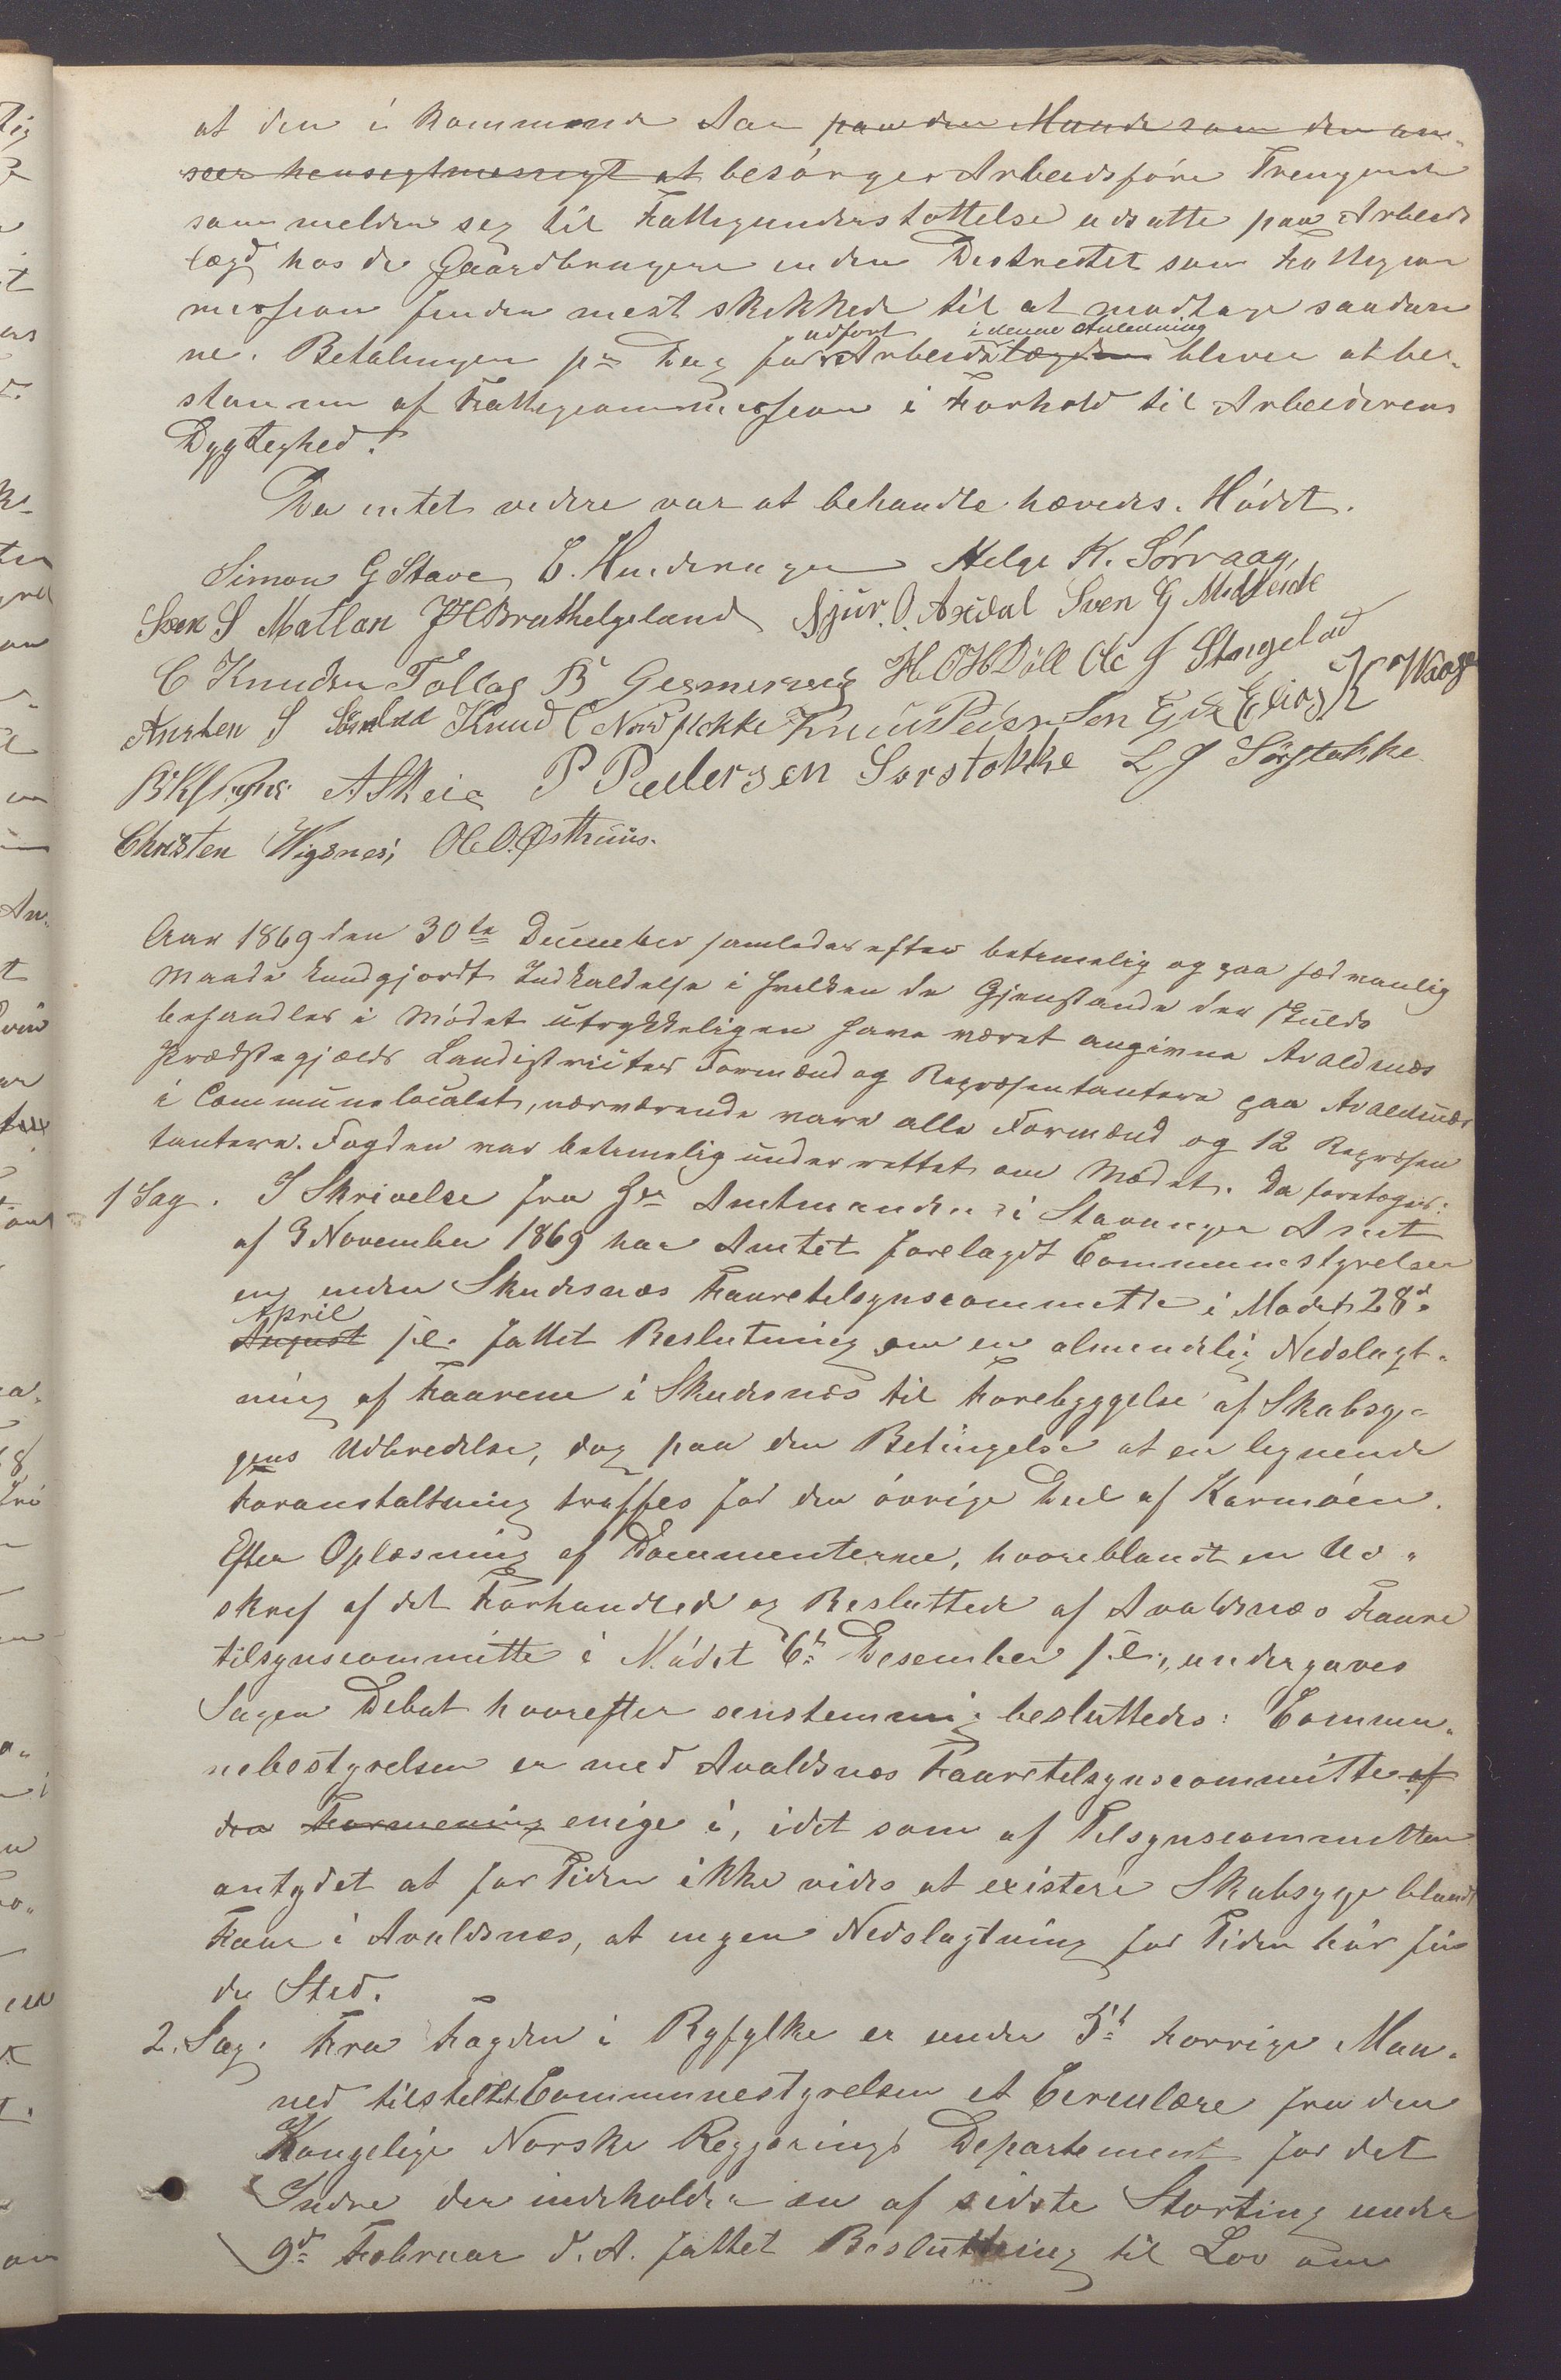 at den i kommende Aar paa den Maade som den an-
seer hensigtmessigt at besörger Arbeidsföre Trengende
som melder seg til Fattigunderstøttelse udsatte paa Arbeids
lægd hos de Gaardbrugere inden Destrectet som Fattigcom
mission finder mest skikkede til at modtage saadan
ne. Betalingen pr Dag for udfört Arbeide lægden i denne Anledning bliver at be-
stemme af Fattigcommissionen i Forhold til Arbeiderens
Dygtighed.
Da intet videre var at behandle hævedes Mödet.
Simon G Stave E. Hundevagen Helge K. Sörvaag,
Sven S Matlan JH Brathelgeland Njur. O. Axdal Sven G Midtende
C Knudsen Tollag B Gesmersvig H O H Döll Ole J Stangelad
Ansten S Knud C Nordstokke Knud Pedersen Eide Elias K Waage
A Skeie P Pedersen Sorstokke L J Sörstokke
Christen Vigsnes; Ole O. Østhuus.
Aar 1869 den 30te December samledes efter betimelig og paa sædvanlig
Maade kundgjordt Indkaldelse i hvilken de Gjenstande der skulde
behandles i Mödet utrykkeligen have været angivne Avaldsnæs
Prædstegjælds Landistricters Formænd og Repræsentantere paa Avaldsnæs
i Communelocalet, nærværende vare alle Formænd og 12 Repræsen
tantere. Fogden var betimelig underrettet om Mødet. Da foretoges:
1 Sag. I Skrivelse fra Hr Amtmanden i Stavanger Amt
af 3 November 1869 har Amtet forelagdt Communestyrelsen
en under Skudesnæs Faaretilsynscommitte i Mödet 28d.
April
August s.l. fattet Beslutning om en almindelig Nedslagt-
ning af Faarene i Skudesnæs til Forebyggelse af Skabsyg-
gens Udbredelse, dog paa den Betingelse at en lignende
Foranstaltning træffes for den övrige Deel af Karmöen.
Efter Oplæsning af Documenterne, hvoreblandt en Ud-
skrif af det Forhandlede og Besluttede af Avaldsnæs Faare
tilsynscommitte i Mödet 6t Desember s.l., undergaves
Sagen Debat hvorefter eenstemmig besluttedes: Commu-
nebestyrelsen er med Avaldsnæs Faaretilsynscommitte af
den Formening enige i, idet som af Tilsynscommitten
antydet at for Tiden ikke vides at existere Skabsyge blandt
Faar i Avaldsnæs, at ingen Nedslagtning for Tiden bör fin
de Sted.
2. Sag. Fra Fogden i Ryfylke er under 5t forrige Maa-
ned tilstellet Communestyrelsen et Circulære fra den
Kongelige Norske Regjerings Departement for det
Indre der indeholder en af sidste Storting under
9d Februar d. A. fattet Beslutning til Lov om